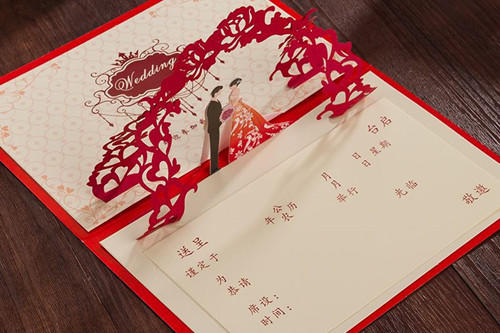 Wedding
送呈 台启
谨定于 年 公历 月 日 星期
农 月 日
为 举行
恭请 光临
敬邀
席设：
时间：